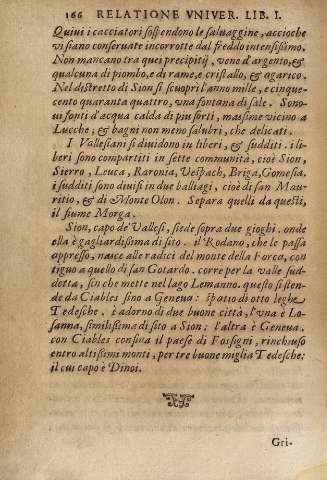 166 RELATIONE VNIVER. LIB. I.
Quiui i cacciatori sospendono le saluaggine, accioche
vi siano conseruate incorrotte dal freddo intensissimo.
Non mancano tra quei precipitij, vene d'argento, &
qualcuna di piombo, e di rame, e cristallo, & agarico.
Nel destretto di Sion si scuoprì l'anno mille, e cinque-
cento quaranta quattro, vna fontana di sale. Sono-
ui fonti d'acqua calda di piu sorti, massime vicino a
Lucche; & bagni non meno salubri, che delicati.
I Vallesiani si diuidono in liberi, & sudditi. i li-
beri sono compartiti in sette communità, cioè Sion,
Sierro, Leuca, Raronta, Vespach, Briga, Gomesia.
i sudditi sono diuisi in due balliagi, cioè di san Mau-
ritio, & di Monte Olon. Separa quelli da questi,
il fiume Morga.
Sion, capo de' Vallesi, siede sopra due gioghi. onde
ella è gagliardissima di sito. il Rodano, che le passa
appresso, nasce alle radici del monte della Forca, con
tiguo a quello di san Gotardo. corre per la valle sud-
dotta, sin che mette nel lago Lemanno. questo si sten-
de da Ciables sino a Geneua: spatio di otto leghe
Tedesche. è adorno di due buone città, l'vna è Lo-
sanna, similissima di sito a Sion: l'altra è Geneua.
con Ciables confina il paese di Fossigni, rinchiuso
entro altissimi monti, per tre buone miglia Tedesche:
il cui capo è Dinoi.
Gri-